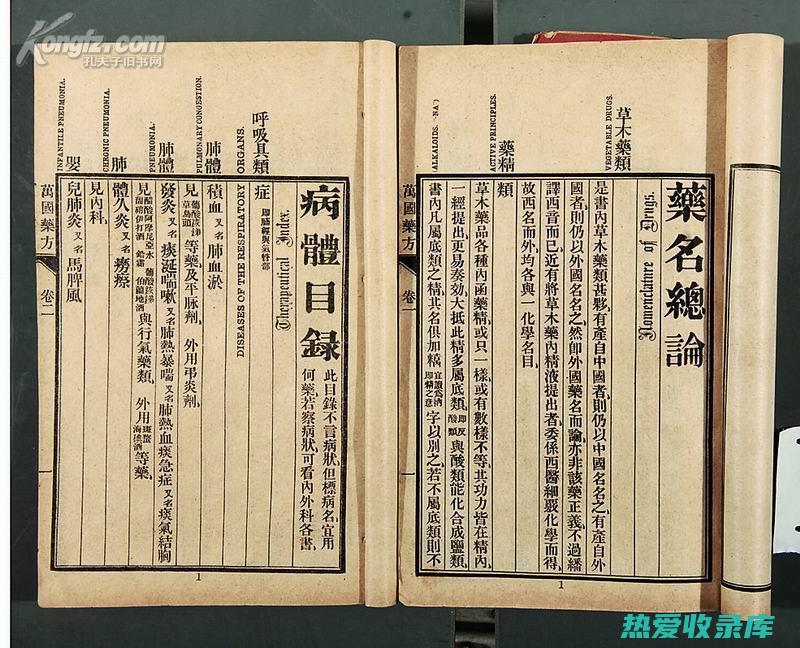 Kongfz.com
孔夫子旧书网
藥名總論
Nomenclature of Drugs.
草木藥類
VEGETABLE DRUGS.
是書內草木藥類甚夥,有產自中國者,則仍以中國名名之,有產自外
國者,則仍以外國名名之,然卽外國藥名而論,亦非該藥正義,不過繙
譯西音而已,近有將草木藥內精液提出者,委係西醫細覈化學而得,
故西名而外,均各與一化學名目
藥精
類
ACTIVE PRINCIPLES.
草木藥品,各種內函藥精,或只一樣,或有數樣不等,其功力皆在精內,
一經提出,更易奏効,大抵此精多屬底類,卽反酸類與酸類能化合成鹽類,
ALKALOIDS.
書內凡屬底類之精,其名俱加 卽精之意字以別之,若不屬底類則不
萬國藥方
卷二
一
1
病體目錄
Therapeutical Index.
此目錄不言病狀,但標病名,宜用
何藥,若察病狀,可看內外科各書,
呼吸具類
症卽肺經與氣管部
DISEASES OF THE RESPIRATORY
ORGANS.
肺體
積血又名肺血淤
PULMONARY CONGESTION.
見葡酸 草烏頭等藥,及平脉劑, 外用弔炎劑,
肺體
發炎又名痰涎喘嗽又名肺熱暴喘又名肺熱血痰急症又名痰氣結胸
PNEUMONIA.
見醋酸阿摩尼亞水 與行氣藥類, 外用斑蝥 等藥,
肺
體久炎又名癆瘵
CHRONIC PNEUMONIA.
見內科,
嬰
兒肺炎又名馬脾風
INFANTILE PNEUMONIA.
萬國藥方
卷二
1
热爱收录库